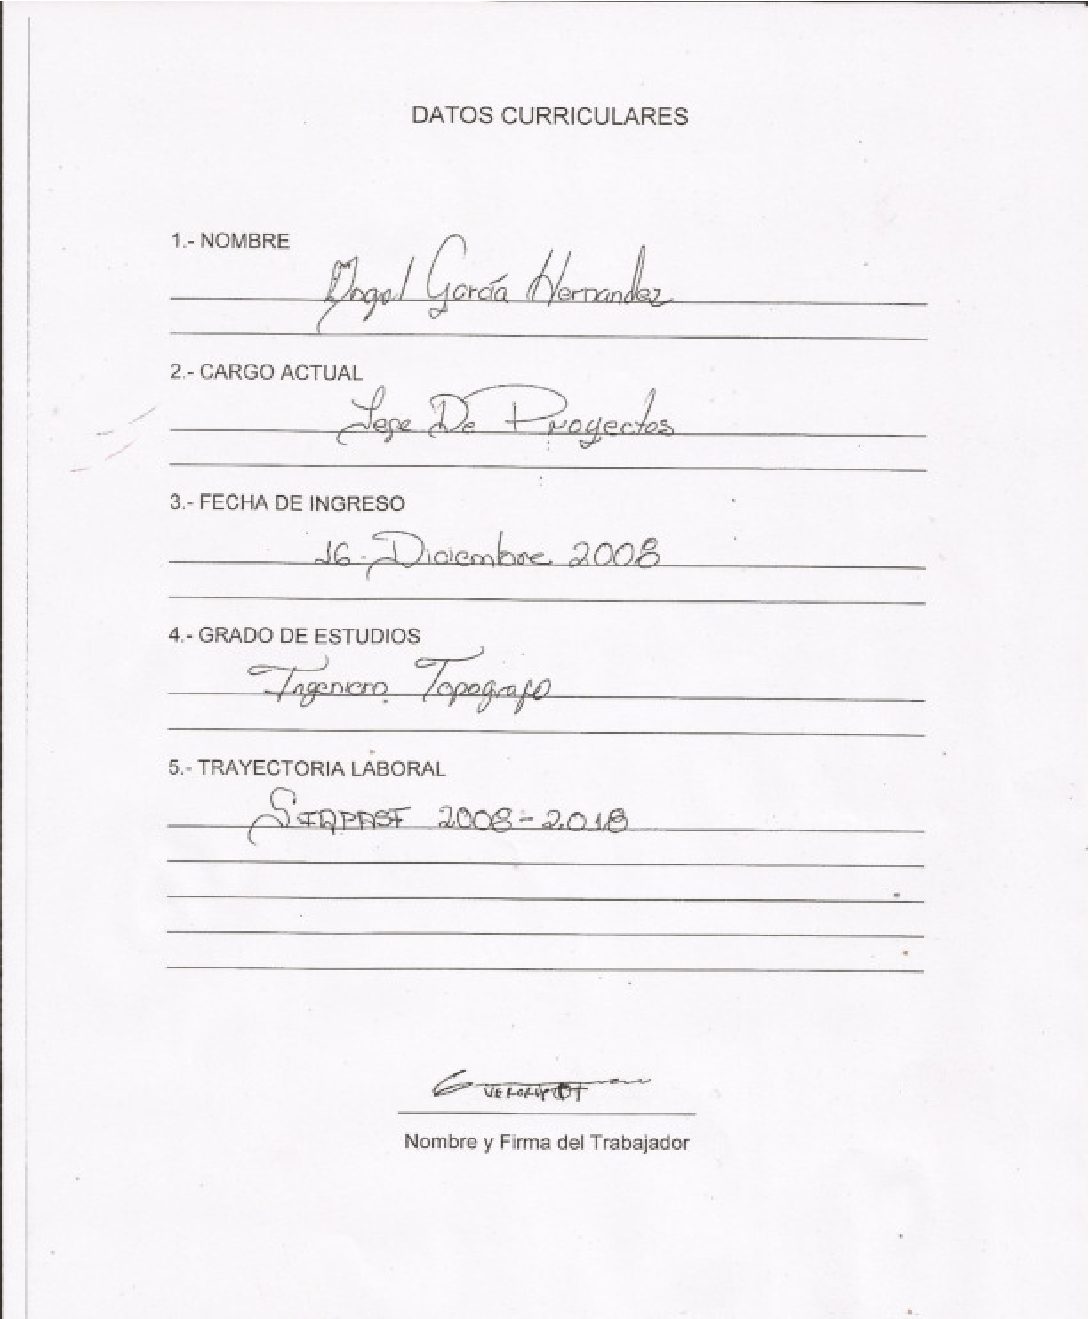 DATOS CURRICULARES
1.- NOMBRE
Angel García Hernandez
2.- CARGO ACTUAL
Jefe De Proyectos
3.- FECHA DE INGRESO
16-Diciembre 2008
4.- GRADO DE ESTUDIOS
Ingeniero Topografo
5.- TRAYECTORIA LABORAL
2008-2018
Nombre y Firma del Trabajador